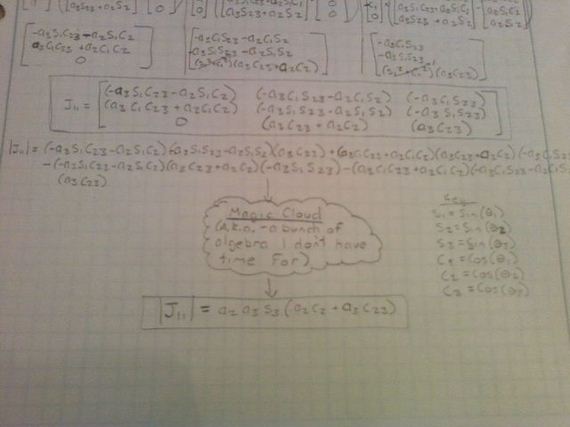 -a₂S₁C₂₃-a₂S₁C₂
a₃C₁C₂₃+a₂C₁C₂
0
-a₃C₁S₂₃-a₂C₁S₂
-a₃S₁S₂₃-a₂S₁S₂
(S₁²+C₁²)(a₃C₂₃+a₂C₂)
-a₃C₁S₂₃
-a₃S₁S₂₃
(S₁²+C₁²)(a₃C₂₃)
J₁₁ = (-a₃S₁C₂₃-a₂S₁C₂) (-a₃C₁S₂₃-a₂C₁S₂) (-a₃C₁S₂₃)
(a₃C₁C₂₃+a₂C₁C₂) (-a₃S₁S₂₃-a₂S₁S₂) (-a₃S₁S₂₃)
0 (a₃C₂₃+a₂C₂) (a₃C₂₃)
|J₁₁| = (-a₃S₁C₂₃-a₂S₁C₂)(-a₃S₁S₂₃-a₂S₁S₂)(a₃C₂₃)+(a₃C₁C₂₃+a₂C₁C₂)(a₃C₂₃+a₂C₂)(-a₃C₁S₂₃
-(-a₃S₁C₂₃-a₂S₁C₂)(a₃C₂₃+a₂C₂)(-a₃S₁S₂₃)-(a₃C₁C₂₃+a₂C₁C₂)(-a₃C₁S₂₃-a₂C₁S
(a₃C₂₃)
Magic Cloud
(A.k.a. -a bunch of
algebra I don't have
time For)
|J₁₁| = a₂a₃S₃(a₂C₂+a₃C₂₃)
Key
S₁=Sin(θ₁)
S₂=Sin(θ₂)
S₃=Sin(θ₃)
C₁=Cos(θ₁)
C₂=Cos(θ₂)
C₃=Cos(θ₃)